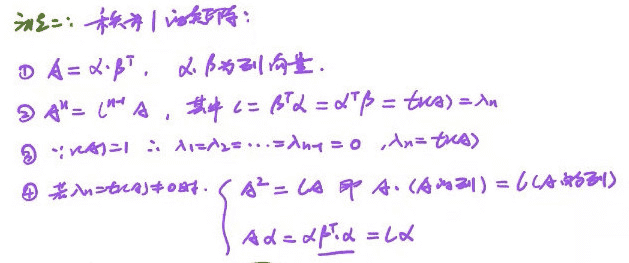 注2: 秩为1的矩阵:
① A = α·βᵀ, α.β为列向量.
② Aⁿ = Lⁿ⁻¹A, 其中 L = βᵀα = αᵀβ = tr(A) = λn
③ ∵ r(A)=1 ∴ λ1=λ2=⋯=λn-1=0, λn=tr(A)
④ 若λn=tr(A)≠0时. { A² = LA 即 A·(A的列) = L(A的列)
Aα = αβᵀ·α = Lα